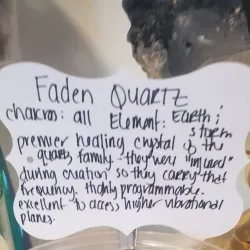 Faden Quartz
chakras: all Element: Earth &
storm
premier healing crystal of the
quartz family - they were "injured"
during creation so they carry that
frequency. Highly programmable.
excellent to access higher vibrational
planes.